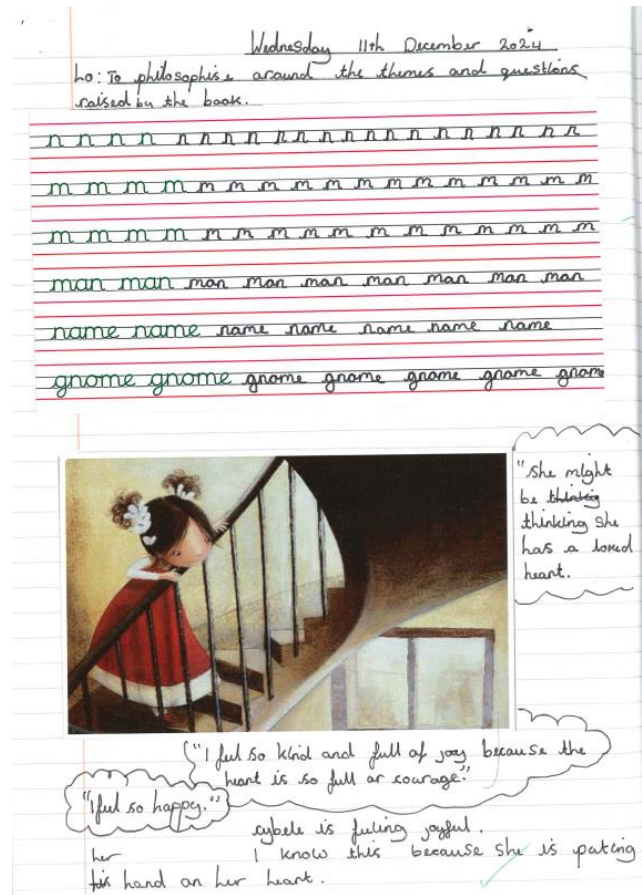 Wednesday 11th December 2024
Lo: To philosophise around the themes and questions
raised by the book.
n n n n n n n n n n n n n n n n n n n n n n
m m m m m m m m m m m m m m m m m m
m m m m m m m m m m m m m m m m m
man man man man man man man man man
name name name name name name name
gnome gnome gnome gnome gnome gnome gnome
"She might
be thinkig
thinking she
has a loved
heart.
"I feel so kind and full of joy because the
heart is so full ar courage."
"I ful so happy."
cybele is fuling joyful.
her I know this because she is puting
his hand on her heart.